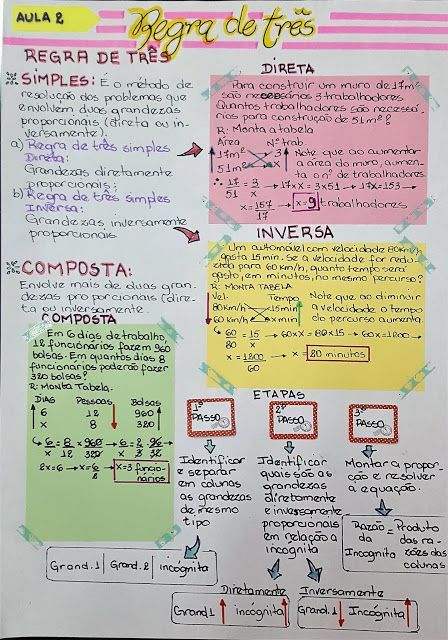 AULA 2
Regra de três
REGRA DE TRÊS
SIMPLES: É o método de
resolução dos problemas que
envolvem duas grandezas
proporcionais (direta ou in-
versamente).
a) Regra de três simples
Direta:
Grandezas diretamente
proporcionais;
b) Regra de três simples
Inversa:
Grandezas inversamente
proporcionais
COMPOSTA:
Envolve mais de duas gran-
dezas proporcionais (dire-
ta ou inversamente.
DIRETA
Para construir um muro de 17m²
são necessários 3 trabalhadores.
Quantos trabalhadores são necessá-
rios para construção de 51m²?
R: Monta a tabela
Área Nº trab.
17m² 3
51m² x
Note que ao aumentar
a área do muro, aumen-
ta o nº de trabalhadores.
∴ 17/51 = 3/x → 17x = 3x51 → 17x = 153 →
x = 157/17 → x = 9 trabalhadores
INVERSA
Um automóvel com velocidade 80km/h
gasta 15 min. Se a velocidade for redu-
zida para 60 km/h, quanto tempo será
gasto, em minutos, no mesmo percurso?
R: MONTA TABELA
Vel. Tempo
80km/h 15min
60 km/h x min
Note que ao diminuir
a velocidade o tempo
do percurso aumenta.
60/80 = 15/x → 60x = 80x15 → 60x = 1200 →
x = 1800/60 → x = 80 minutos
COMPOSTA
Em 6 dias de trabalho
12 funcionários fazem 960
bolsas. Em quantos dias 8
funcionários poderão fazer
320 bolsas?
R: Monta Tabela.
DIAS Pessoas Bolsas
6 12 960
x 8 320
6/x = 8/12 x 960/320 → 6/x = 8/3 · 96/32 →
2x = 6 → x = 6/2 → x = 3 funcio-
nários
ETAPAS
1º PASSO
2º PASSO
3º PASSO
Identificar
e separar
em colunas
as grandezas
de mesmo
tipo
Identificar
quais são as
grandezas
diretamente
e inversamente
proporcionais
em relação a
incógnita
Montar a propor-
ção e resolver
a equação.
Razão da Incógnita = Produto
das ra-
zões das
colunas
Grand. 1 Grand. 2 incógnita
Diretamente
Inversamente
Grand 1 incógnita
Grand. 1 Incógnita